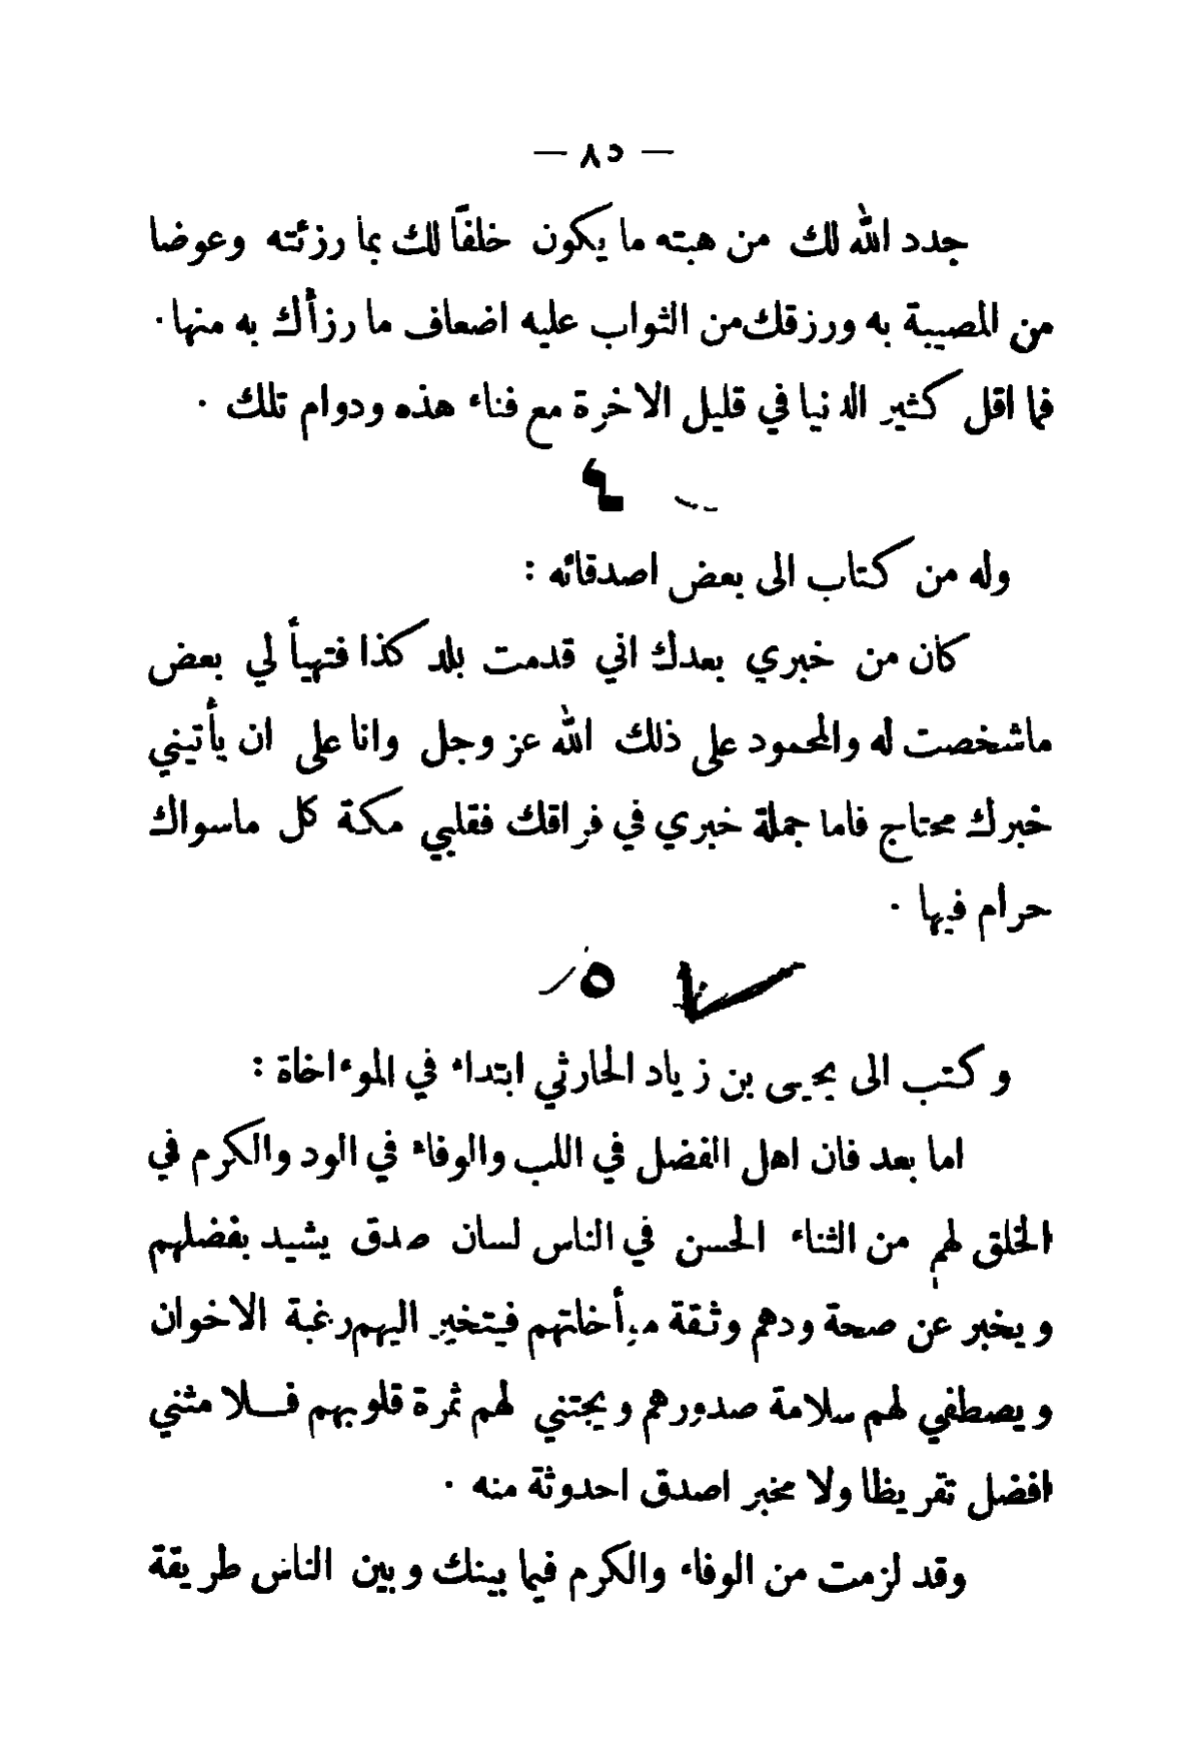 — ٨٥ —
جدد الله لك من هبته ما يكون خلفًا لك بما رزئته وعوضا
من المصيبة به ورزقك من الثواب عليه اضعاف ما رزأك به منها٠
فما اقل كثير الدنيا في قليل الاخرة مع فناء هذه ودوام تلك ٠
٤
وله من كتاب الى بعض اصدقائه :
كان من خبري بعدك اني قدمت بلد كذا فتهيأ لي بعض
ماشخصت له والمحمود على ذلك الله عز وجل وانا على ان يأتيني
خبرك محتاج فاما جملة خبري في فراقك فقلبي مكة كل ماسواك
حرام فيها ٠
٥
وكتب الى يحيى بن زياد الحارثي ابتداء في الموءاخاة :
اما بعد فان اهل الفضل في اللب والوفاء في الود والكرم في
الخلق لهم من الثناء الحسن في الناس لسان صدق يشيد بفضلهم
ويخبر عن صحة ودهم وثقة مؤأخاتهم فيتخير اليهم رغبة الاخوان
ويصطفي لهم سلامة صدورهم ويجتني لهم ثمرة قلوبهم فلا مثني
افضل تقريظا ولا مخبر اصدق احدوثة منه ٠
وقد لزمت من الوفاء والكرم فيما بينك وبين الناس طريقة